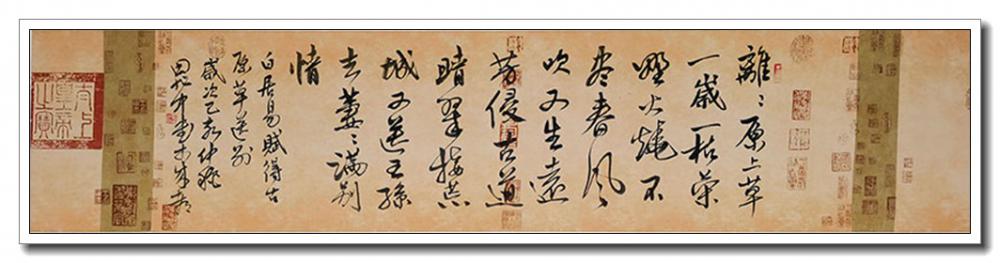 離〻原上草
一歲一枯榮
野火燒不
尽春風
吹又生遠
芳侵古道
晴翠接荒
城又送王孫
去萋〻滿別
情
白居易賦得古
原草送別
歲次乙亥仲秋
太上皇帝之寶